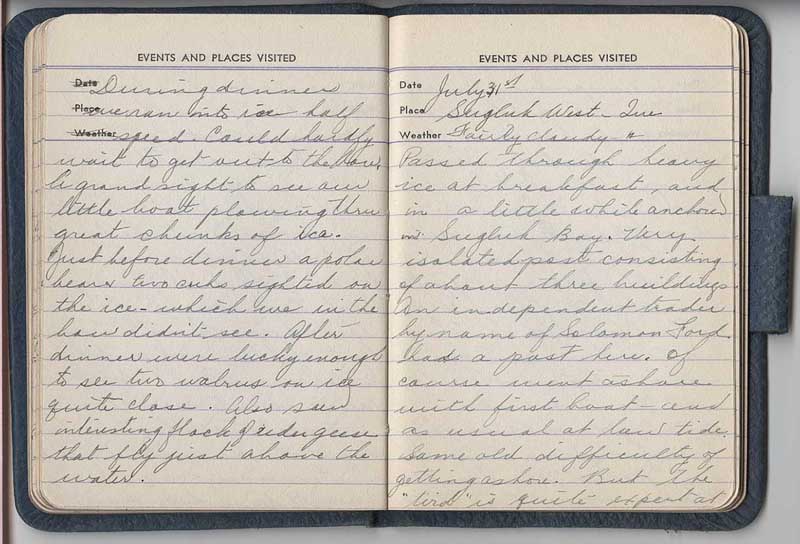 EVENTS AND PLACES VISITED
Date During dinner
Place we ran into ice half
Weather speed. Could hardly
wait to get out to the bow.
A grand sight to see our
little boat plowing thru
great chunks of ice.
Just before dinner a polar
bear & two cubs sighted on
the ice - which we in the
bow didn't see. After
dinner were lucky enough
to see two walrus on ice
quite close. Also saw
interesting flock of eider geese
that fly just above the
water.
EVENTS AND PLACES VISITED
Date July 31st
Place Sugluk West - Que
Weather Fairly cloudy
Passed through heavy
ice at breakfast, and
in a little while anchored
in Sugluk Bay. Very
isolated post consisting
of about three buildings.
An independent trader
by name of Solomon Ford
had a post here. Of
course went ashore
with first boat - and
as usual at low tide.
Same old difficulty of
getting ashore. But the
" is quite expert at